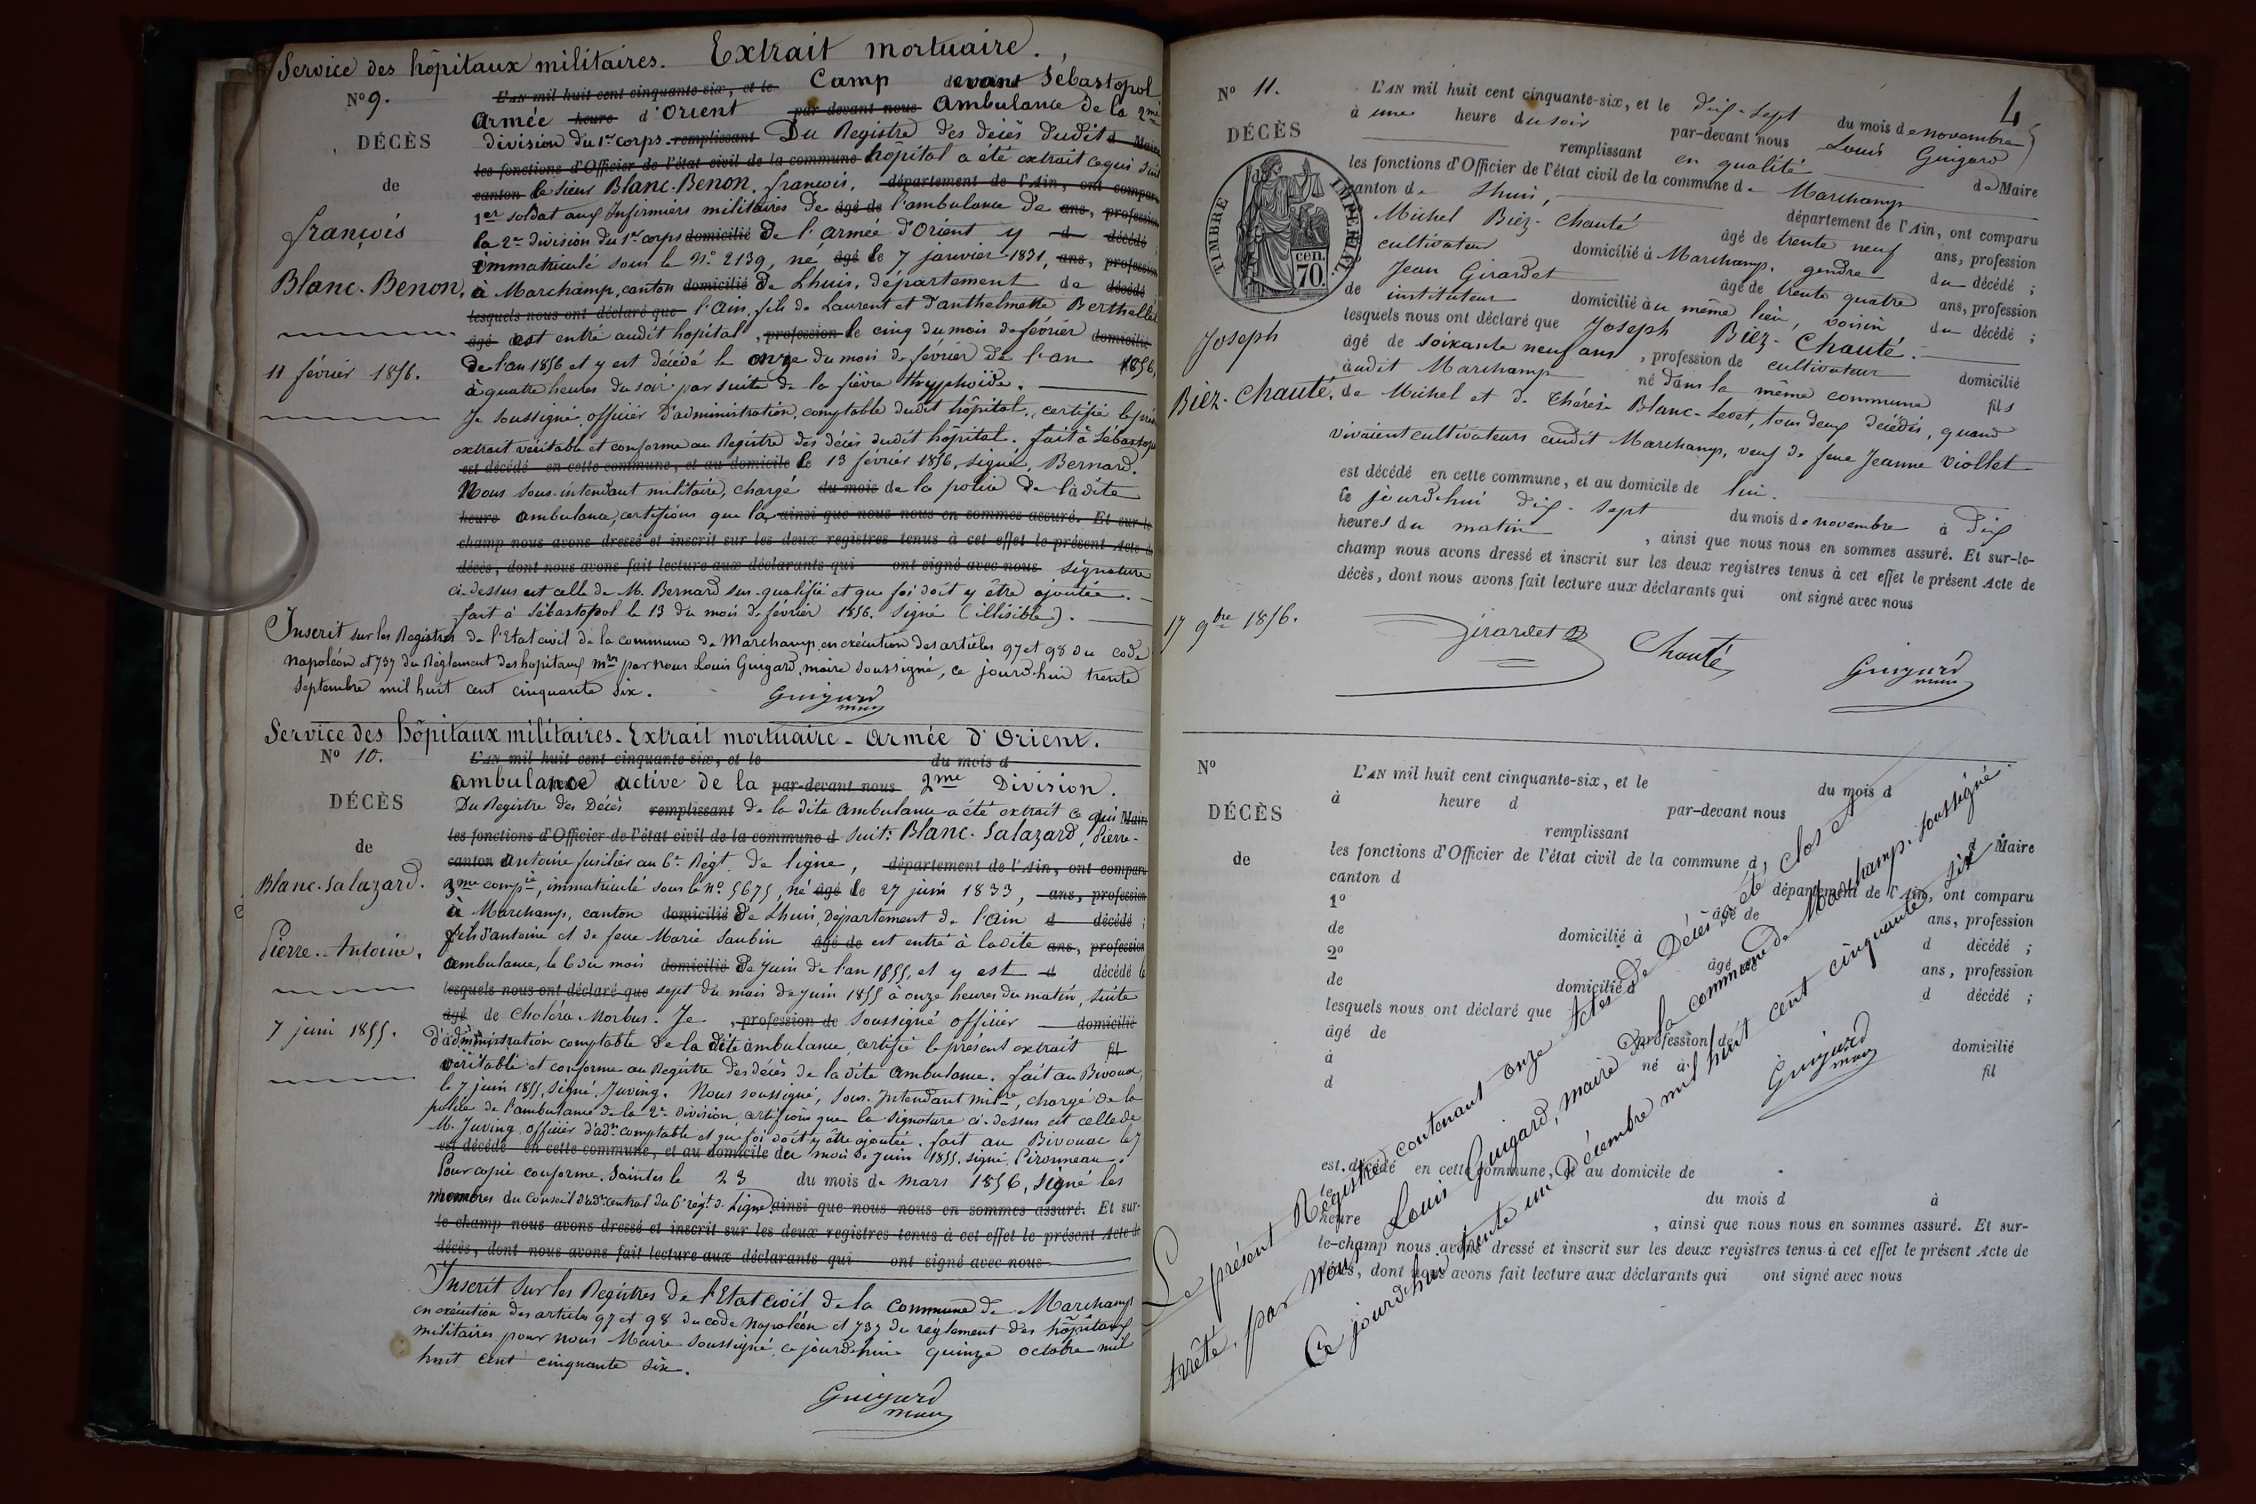 Service des hôpitaux militaires. Extrait mortuaire.
N° 9.
L'AN mil huit cent cinquante-six, et le Camp devant Sébastopol
armée heure d'Orient par-devant nous Ambulance de la 2me
DÉCÈS
division du 1er corps remplissant Du Registre des décès dudit Maire
les fonctions d'Officier de l'état civil de la commune hôpital a été extrait ce qui suit
de
canton le sieur Blanc-Benon, françois, département de l'Ain, ont comparu
1er soldat aux Infirmiers militaires de âgé de l'ambulance de ans, profession
françois
la 2me division du 1er corps domicilié de l'armée d'Orient y d décédé
immatriculé sous le N° 2139, né âgé le 7 janvier 1831, ans, profession
Blanc-Benon,
à Marchamp, canton domicilié de Lhuis, département de décédé
lesquels nous ont déclaré que l'Ain, fils de Laurent et d'anthelmette Berthellet
âgé est entré audit hôpital, profession le cinq du mois de février domicilié
11 février 1856.
de l'an 1856 et y est décédé le onze du mois de février de l'an 1856,
à quatre heures du soir par suite de la fièvre thryphoïde.
Je soussigné, officier d'administration, comptable dudit hôpital, certifie le
extrait véritable et conforme au Registre des décès dudit hôpital. fait à Sébastopol
est décédé en cette commune, et au domicile le 13 février 1856, signé, Bernard.
Nous sous-intendant militaire, chargé du mois de la police de la dite
heure ambulance, certifions que la ainsi que nous nous en sommes assuré. Et sur-le
champ nous avons dressé et inscrit sur les deux registres tenus à cet effet le présent Acte de
décès, dont nous avons fait lecture aux déclarants qui ont signé avec nous signature
ci-dessus est celle de M. Bernard sus-qualifié et que foi doit y être ajoutée.
fait à Sébastopol le 13 du mois de février 1856. Signé (illisible).
Inscrit sur les Registres de l'Etat civil de la commune de Marchamp, en exécution des articles 97 et 98 du code
Napoléon et 737 du Règlement des hopitaux mres par nous Louis Guigard, maire soussigné, ce jourd'hui trente
Septembre mil huit cent cinquante six.
Guigard
maire
Service des hôpitaux militaires - Extrait mortuaire - armée d'Orient.
N° 10.
L'AN mil huit cent cinquante-six, et le du mois d
ambulance active de la par-devant nous 2me Division.
DÉCÈS
Du Registre des Décès remplissant de la dite ambulance a été extrait ce qui Maire
les fonctions d'Officier de l'état civil de la commune d suit: Blanc-Salazard, Pierre-
de
canton antoine fusilier au 6e Régt. de ligne, département de l'Ain, ont comparu
Blanc-Salazard.
3me compie, immatriculé sous le N° 5675, né âgé le 27 juin 1833, ans, profession
à Marchamp, canton domicilié de Lhuis, Département de l'Ain d décédé ;
Pierre-Antoine,
fils d'antoine et de feue Marie Saubin âgé de est entré à ladite ans, profession
ambulance, le 6 du mois domicilié de juin de l'an 1855, et y est d décédé le
lesquels nous ont déclaré que sept du mois de juin 1855 à onze heures du matin, suite
7 juin 1855.
âgé de Choléra-Morbus. Je, profession de soussigné officier domicilié
d'administration comptable de la dite ambulance, certifie le présent extrait fil
véritable et conforme au Registre des décès de la dite ambulance. fait au Bivouac,
le 7 juin 1855, signé, Juving. Nous soussigné, Sous-Intendant mire, chargé de la
police de l'ambulance de la 2e division, certifions que la signature ci-dessus est celle de
M. Juving, officier d'adon comptable et que foi doit y être ajoutée. fait au Bivouac le 7
est décédé en cette commune, et au domicile du mois de juin 1855, signé, Pironneau.
Pour copie conforme. Saintes le 23 du mois de mars 1856, signé les
membres du Conseil d'adon central du 6e régt. de Ligne. ainsi que nous nous en sommes assuré. Et sur-
le-champ nous avons dressé et inscrit sur les deux registres tenus à cet effet le présent Acte de
décès, dont nous avons fait lecture aux déclarants qui ont signé avec nous
Inscrit sur les Registres de l'Etat civil de la commune de Marchamp
en exécution des articles 97 et 98 du code Napoléon et 737 du règlement des hôpitaux
militaires, pour nous Maire soussigné, ce jourd'hui quinze octobre mil
huit cent cinquante six.
Guigard
maire
4
N° 11.
L'AN mil huit cent cinquante-six, et le dix-sept du mois de novembre
à une heure du soir par-devant nous Louis Guigard
DÉCÈS
remplissant en qualité de Maire
les fonctions d'Officier de l'état civil de la commune de Marchamp
canton de Lhuis, département de l'Ain, ont comparu
TIMBRE IMPÉRIAL
cen. 70.
Michel Biez-Chauté âgé de trente neuf ans, profession
cultivateur domicilié à Marchamp, gendre du décédé ;
Jean Girardet âgé de trente quatre ans, profession
de instituteur domicilié au même lieu, voisin du décédé ;
lesquels nous ont déclaré que Joseph Biez-Chauté.
Joseph
âgé de soixante neuf ans, profession de cultivateur domicilié
audit Marchamp né dans la même commune fils
Biez-Chauté,
de Michel et de Thérèse Blanc-Levet, tous deux décédés, quand
vivaient cultivateurs audit Marchamp, veuf de feue Jeanne Viollet
est décédé en cette commune, et au domicile de lui.
le jourd'hui dix-sept du mois de novembre à dix
heures du matin, ainsi que nous nous en sommes assuré. Et sur-le-
champ nous avons dressé et inscrit sur les deux registres tenus à cet effet le présent Acte de
décès, dont nous avons fait lecture aux déclarants qui ont signé avec nous
17 9bre 1856.
Girardet Chauté Guigard
maire
N°
L'AN mil huit cent cinquante-six, et le du mois d
à heure d par-devant nous
DÉCÈS
remplissant d Maire
les fonctions d'Officier de l'état civil de la commune d
de
canton d département de l'Ain, ont comparu
1° âgé de ans, profession
de domicilié à d décédé ;
2° âgé de ans, profession
de domicilié à d décédé ;
lesquels nous ont déclaré que
âgé de profession de domicilié
à né à fil
d
est décédé en cette commune, et au domicile de
le du mois d à
heure, ainsi que nous nous en sommes assuré. Et sur-
le-champ nous avons dressé et inscrit sur les deux registres tenus à cet effet le présent Acte de
décès, dont nous avons fait lecture aux déclarants qui ont signé avec nous
Le présent Registre contenant onze actes de Décès a été clos et
arrêté, par Nous Louis Guigard, maire de la commune de Marchamp, soussigné.
Ce jourd'hui trente un Décembre mil huit cent cinquante six
Guigard
maire